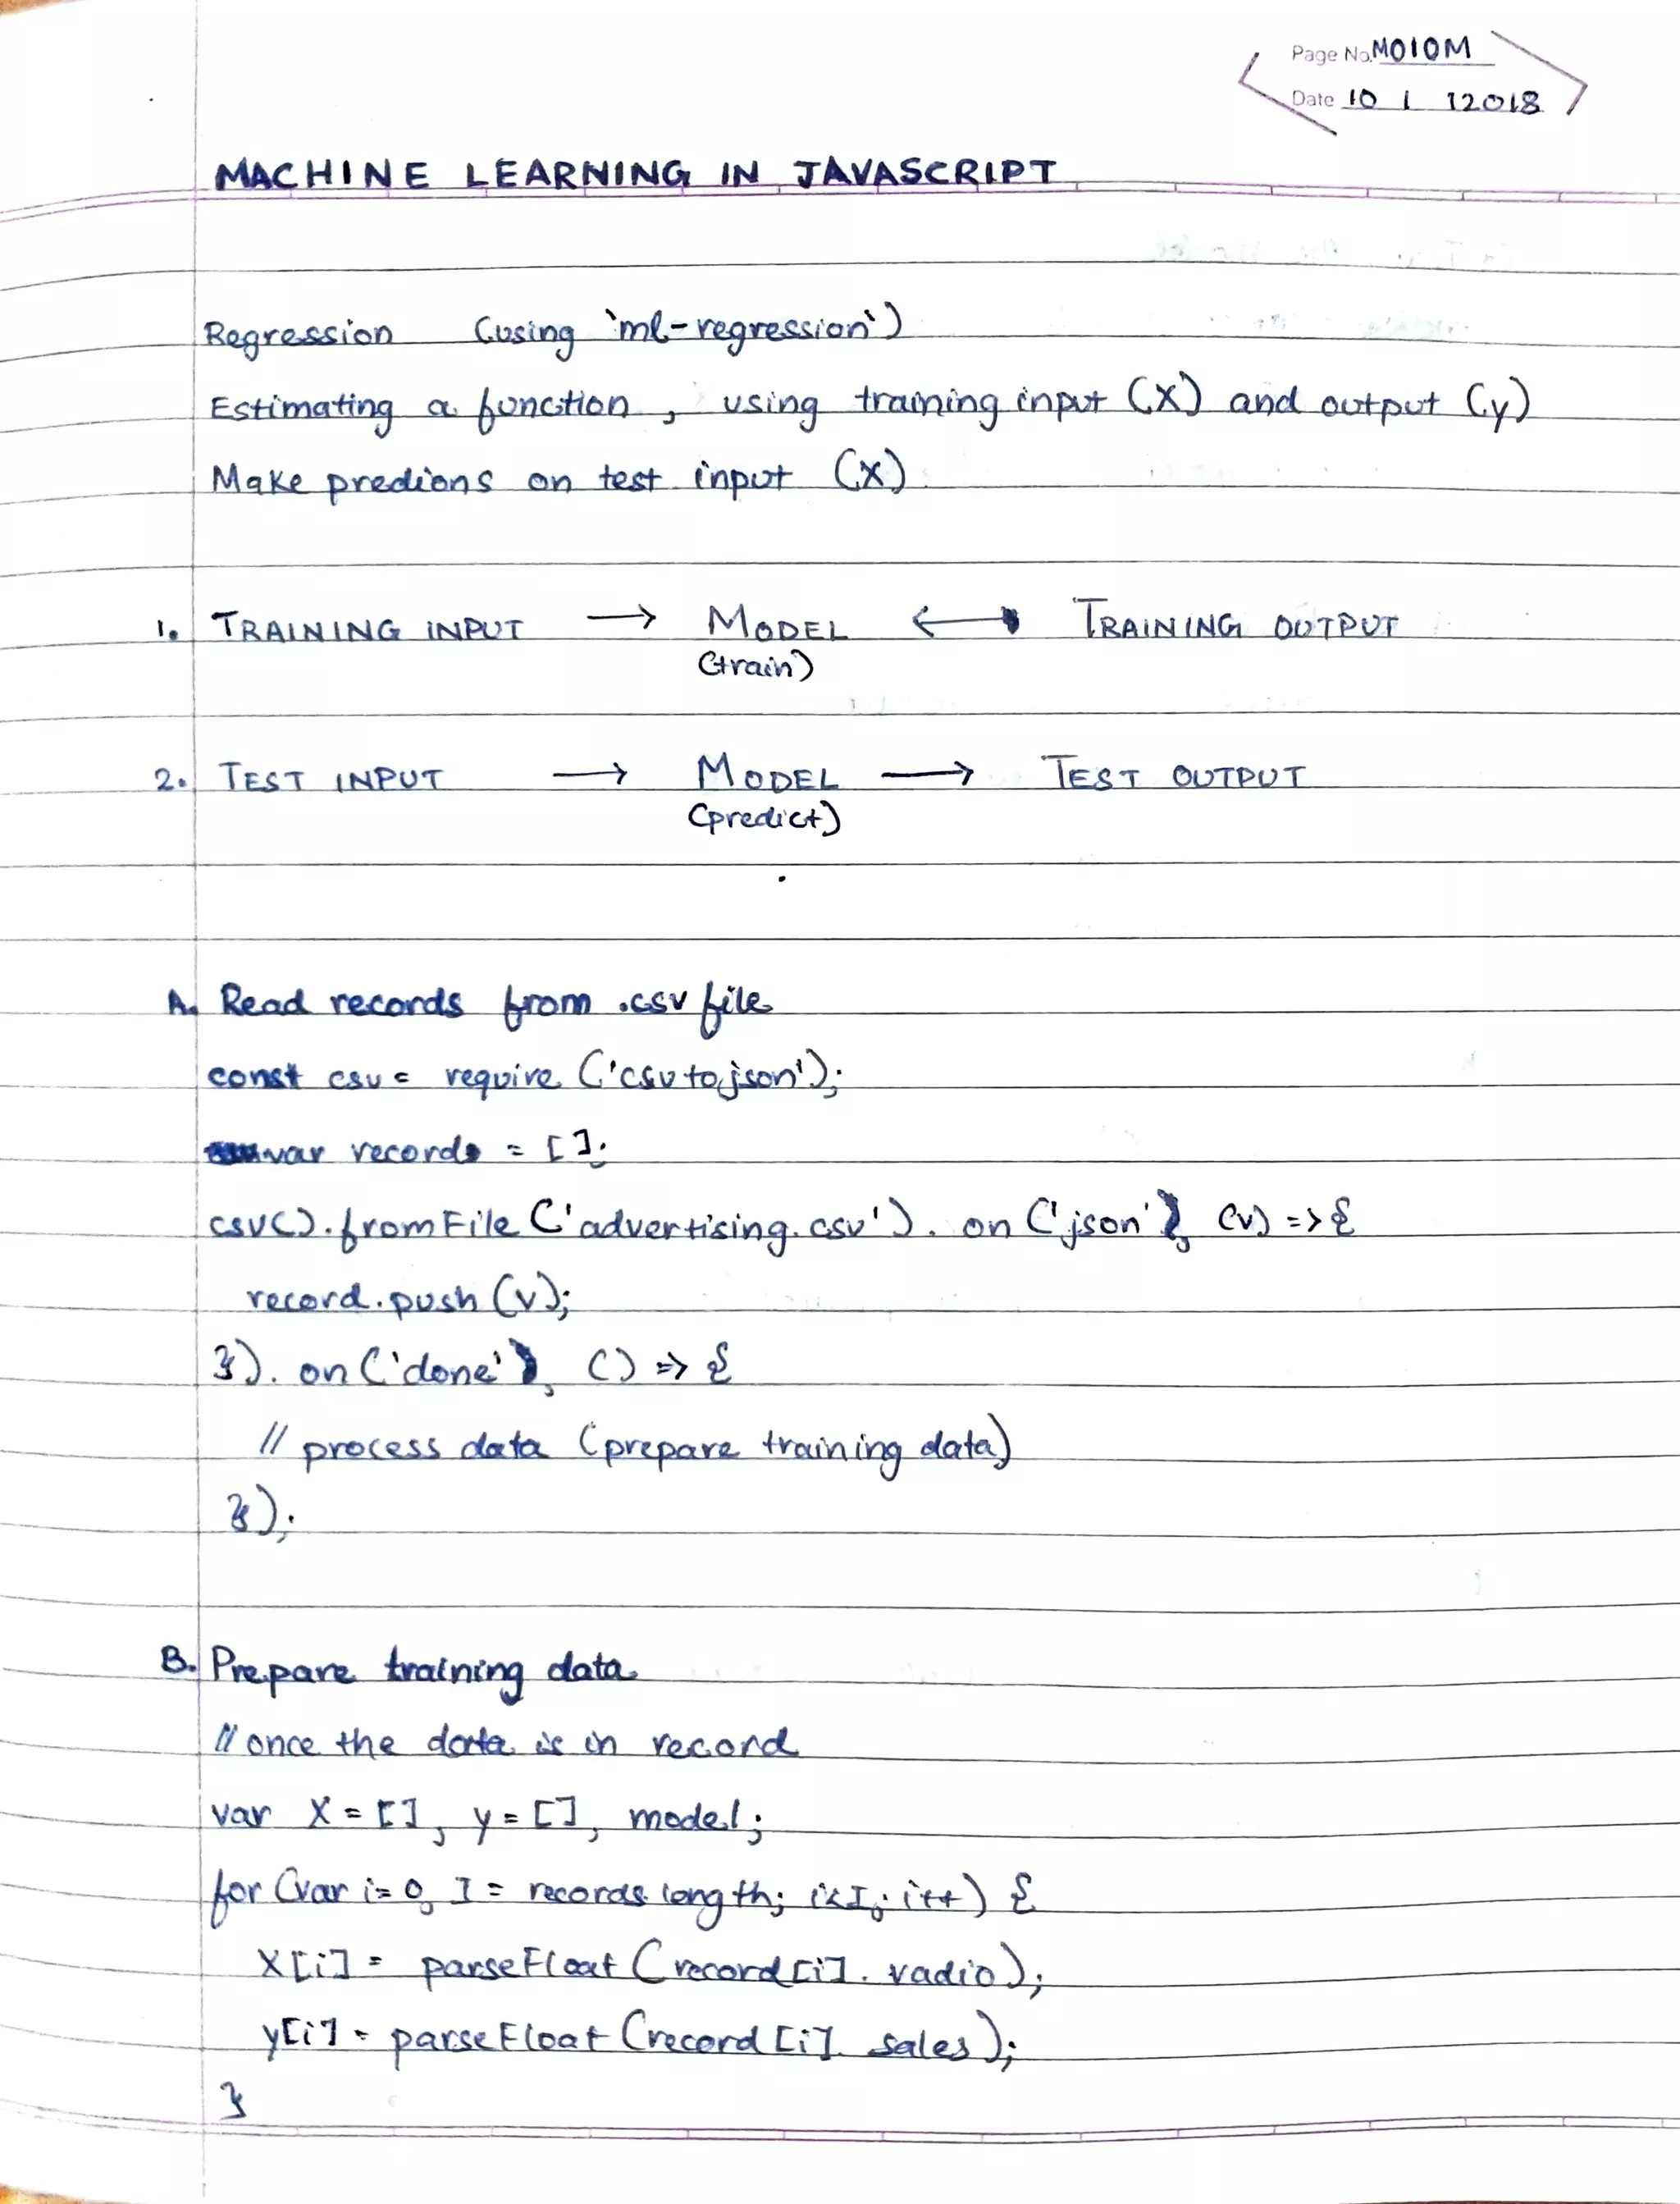 Page No. M010M
Date 10 / 1 /2018
MACHINE LEARNING IN JAVASCRIPT
Regression (using `ml-regression`)
Estimating a function, using training input (X) and output (y)
Make predions on test input (X)
1. TRAINING INPUT → MODEL ← TRAINING OUTPUT
(train)
2. TEST INPUT → MODEL → TEST OUTPUT
(predict)
A. Read records from .csv file
const csv = require ('csvtojson');
var records = [];
csv().fromFile ('advertising.csv'). on ('json', (v) => {
record.push (v);
}). on ('done', () => {
// process data (prepare training data)
});
B. Prepare training data
// once the data is in record
var X = [], y = [], model;
for (var i = 0, I = records.length; i<I; i++) {
X[i] = parseFloat (record[i]. radio);
y[i] = parseFloat (record [i]. sales);
}